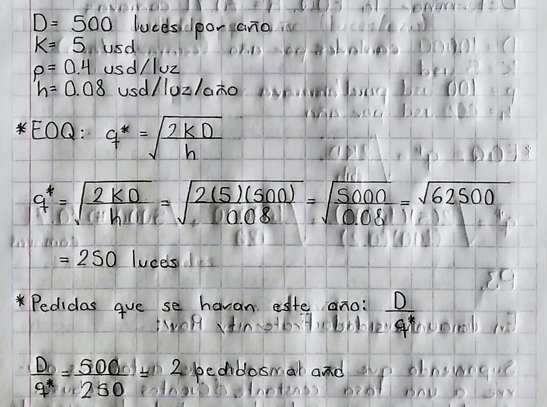 D= 500 luces por año
K= 5 usd
p= 0.4 usd/luz
h= 0.08 usd/luz/año
* EOQ: q* = √(2KD/h)
q* = √(2KD/h) = √(2(5)(500)/0.08) = √(5000/0.08) = √62500
= 250 luces
* Pedidos que se haran este año: D/q*
D/q* = 500/250 = 2 pedidos al año